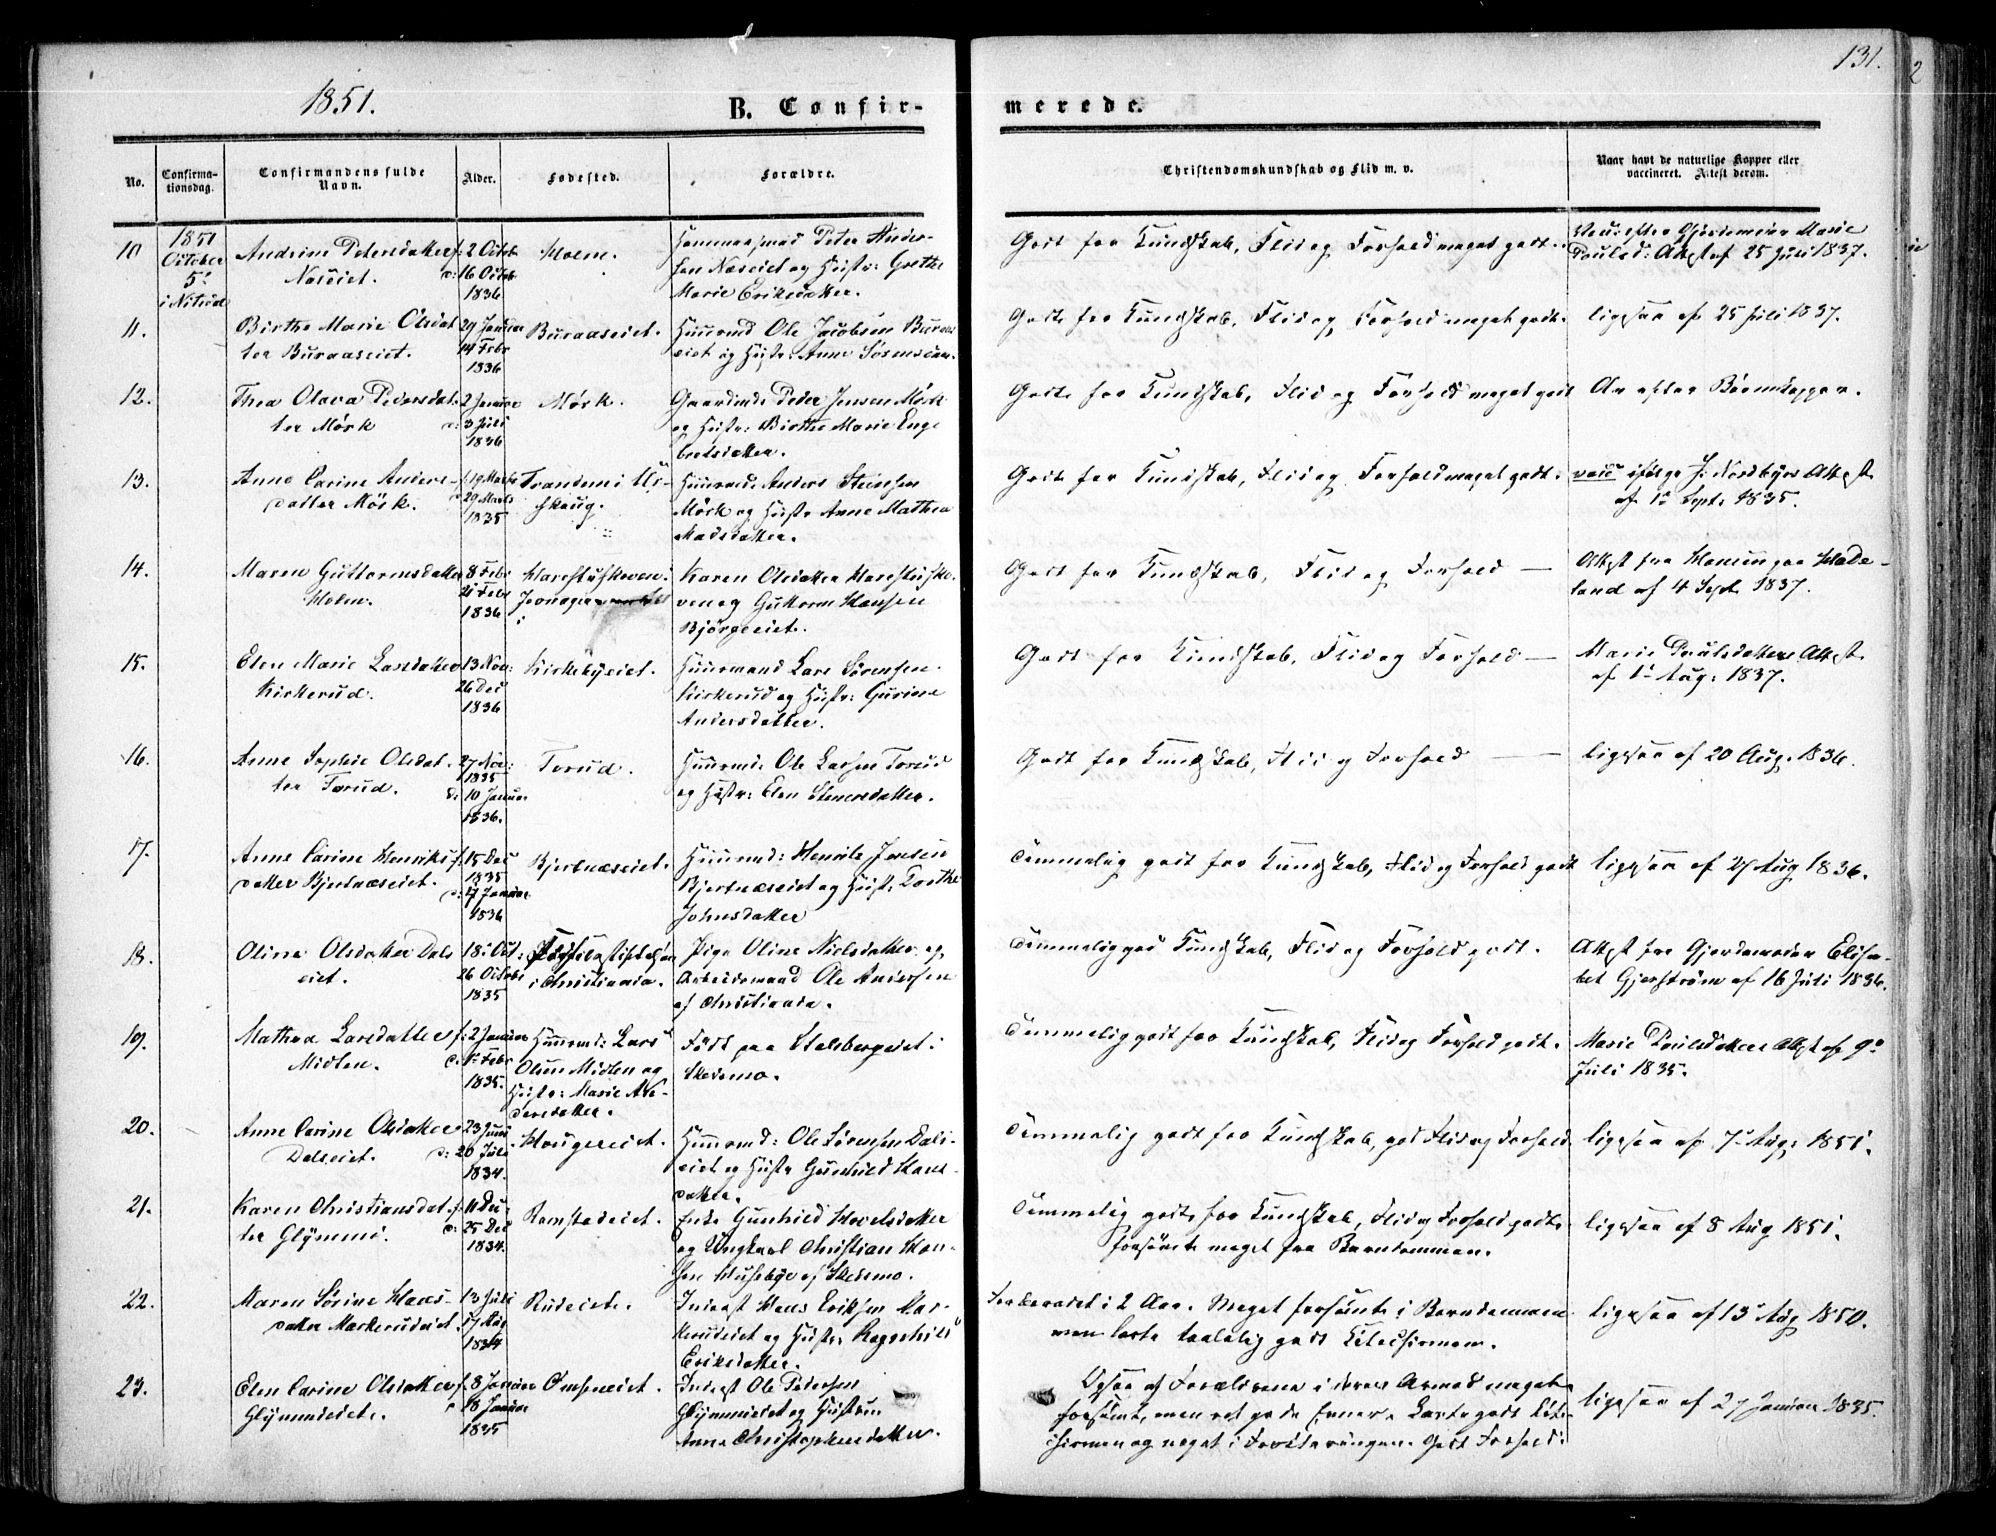 131.
2
1851.
B. Confir-
merede.
No.
Confirma-
tionsdag.
Confirmandens fulde
Navn.
Alder.
Fødested.
Forældre.
Christendomskundskab og Flid m. v.
Naar havt de naturlige Kopper eller
vaccineret. Attest derom.
10
1851
October
5
i Nitedal
Andrine Petersdatter
f: 2 Octob
16 Octob
1836
Holm.
Peter Ander-
sen Næseiet og Hustr: Grethe
Marie Eriksdatter.
Godt for Kundskab, Flid og Forhold meget godt.
Marie
Paulsd: Attest af 25 Juli 1837.
11.
Birthe Marie Olsdat
ter Buraaseiet.
29 Januar
14 Febr
1836
Buraaseiet.
Huusmd Ole Jacobsen Buraas
eiet og Hustr: Anne Sörensdatter
Godt for Kundskab, Flid og Forhold meget godt.
ligesaa af 25 Juli 1837.
12.
Thea Olava Pedersdat
ter Mörk
2 Januar
3 Juli
1836
Mörk.
Gaardmd: Peder Jensen Mörk
og Hustr: Birthe Marie Enge
bretsdatter.
Godt for Kundskab, Flid og Forhold meget godt
Ar efter Börnekopper.
13.
Anne Carine Anders-
datter Mörk.
f: 19 Marts
29 Marts
1835
Trandem i Ul-
skoug.
Huusmd: Anders Steinsen
Mörk og Hustr Anne Mathea
Madsdatter.
Godt for Kundskab, Flid og Forhold meget godt.
vacc ifölge J. Nordbyes Attest
af 1 Sept. 1835.
14.
Maren Guttormsdatter
Holm.
8 Febr
21 Febr
1836
Harestuskoven
Jevnager
Karen Olsdatter Harestusko-
ven og Guttorm Hansen
Björgeeiet.
Godt for Kundskab, Flid og Forhold —
Attest fra paa Hade-
land af 4 Sept. 1837.
15.
Elen Marie Larsdatter
Kirkerud.
13 Nov:
26 Dec
1836
Kirkebyeiet.
Huusmand Lars Sörensen
Kirkerud og Hustr: Gurine
Andersdatter.
Godt for Kundskab, Flid og Forhold —
Marie Paulsdatters Attest
af 1 Aug: 1837.
16.
Anne Sophie Olsdat-
ter Torud.
27 Nov:
1835
d: 10 Januar
1836.
Torud.
Huusmd: Ole Larsen Torud
og Hustr: Elen Steensdatter.
Godt for Kundskab, Flid og Forhold —
ligesaa af 20 Aug. 1836.
17.
Anne Carine Henriks-
datter Bjertnæseiet.
f: 15 Dec
1835
d: 17 Januar
1836
Bjertnæseiet.
Huusmd: Henrik Jensen
Bjertnæseiet og Hustr: Dorthe
Johnsdatter
Temmelig godt for Kundskab, Flid og Forhold godt
ligesaa af 27 Aug 1836.
18.
Oline Olsdatter Dals
eiet.
18 Oct:
26 Octobr
1835
Födselsstiftelsen
i Christiania.
Pige Oline Nielsdatter og
Arbeidsmand Ole Andersen
af Christiania.
Temmelig god Kundskab, Flid og Forhold godt.
Attest fra Gjordemoder Elisa-
bet Gjerström af 16 Juli 1836.
19.
Mathea Larsdatter
Midten.
f: 2 Januar
d: 1 Febr
1835.
Huusmd: Lars
Olsen Midten og
Hustr: Marie An-
dersdatter.
Födt paa Stalsbergeiet i
Skedsmo.
Temmelig godt for Kundskab, Flid og Forhold godt.
Marie Paulsdatters Attest af 9
Juli 1835.
20.
Anne Carine Olsdatter
Dalseiet.
23 Juni
d: 20 Juli
1834.
Hougereiet.
Huusmd: Ole Sörensen Dals-
eiet og Hustr Gunhild Hans-
datter.
Temmelig godt for Kundskab, god Flid og Forhold
ligesaa af 7 Aug: 1851.
21.
Karen Christiansdat-
ter Glömmi.
f: 11 Dec
d: 25 Dec
1834.
Ramstadeiet.
Enke Gunhild Hovelsdatter
og Ungkarl Christian Han-
sen Huseby af Skedsmo.
Temmelig godt for Kundskab, Flid og Forhold godt
forsömt meget fra Barndommen.
ligesaa af 8 Aug 1851.
22.
Maren Sörine Hans-
datter Markerudeiet.
13 Juli
17 Aug
1834
Rudeiet.
Inderst Hans Eriksen Mar-
kerudeiet og Hustr: Ragnhild
Eriksdatter.
Forberedet i 2 Aar. Meget forsömt i Barndommen
men læste taalelig godt Katechismen.
ligesaa af 13 Aug 1850.
23.
Elen Carine Olsdatter
Glömmieiet.
f. 8 Januar
18 Januar
1835
Omseneiet.
Inderst Ole Pedersen
Glömmieiet og Hustru
Anne Christophersdatter.
Ogsaa af Forældrene i deres Armod meget
forsömt, men ret gode Evner. Læste godt Kate-
chismen og noget i Forklaringen. Godt Forhold.
ligesaa af 27 Januar 1835.